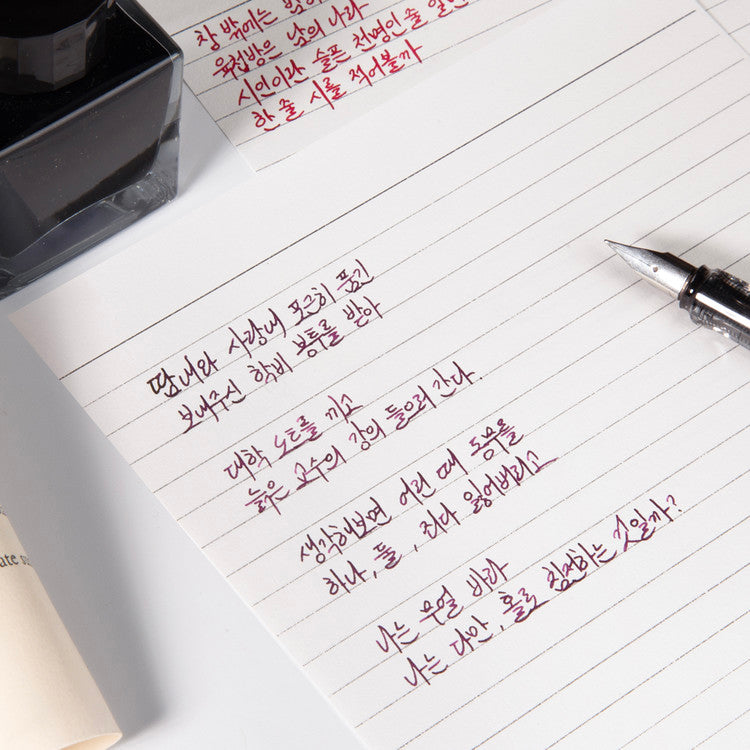 창 밖에는 밤
육첩방은 남의 나라
시인이란 슬픈 천명인 줄 알
한 줄 시를 적어볼까
땀내와 사랑내 포근히 품긴
보내주신 학비 봉투를 받아
대학 노트를 끼고
늙은 교수의 강의 들으러 간다.
생각해보면 어린 때 동무를
하나, 둘, 죄다 잃어버리고
나는 무얼 바라
나는 다만, 홀로 침전하는 것일까?
ate